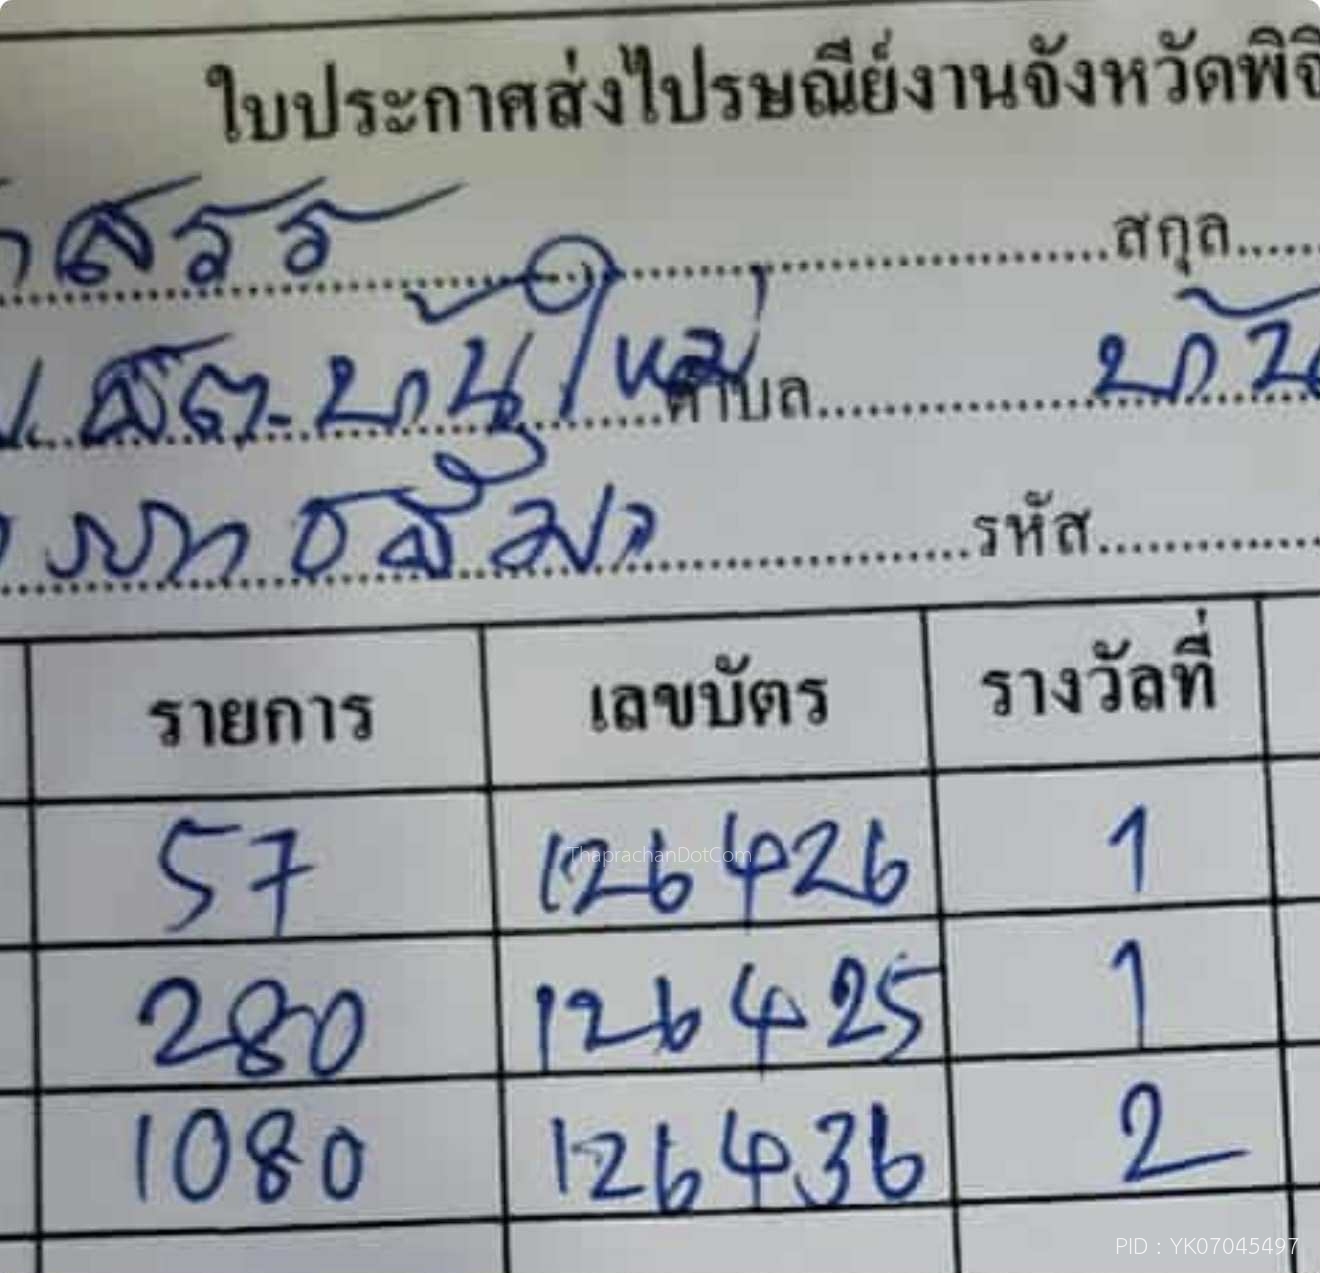 ใบประกาศส่งไปรษณีย์งานจังหวัดพิจิ
สรร สกุล
ตำบล บ้าน
รหัส
รายการ เลขบัตร รางวัลที่
57 126426 1
ThaprachanDotCom
280 126425 1
1080 126436 2
PID : YK07045497